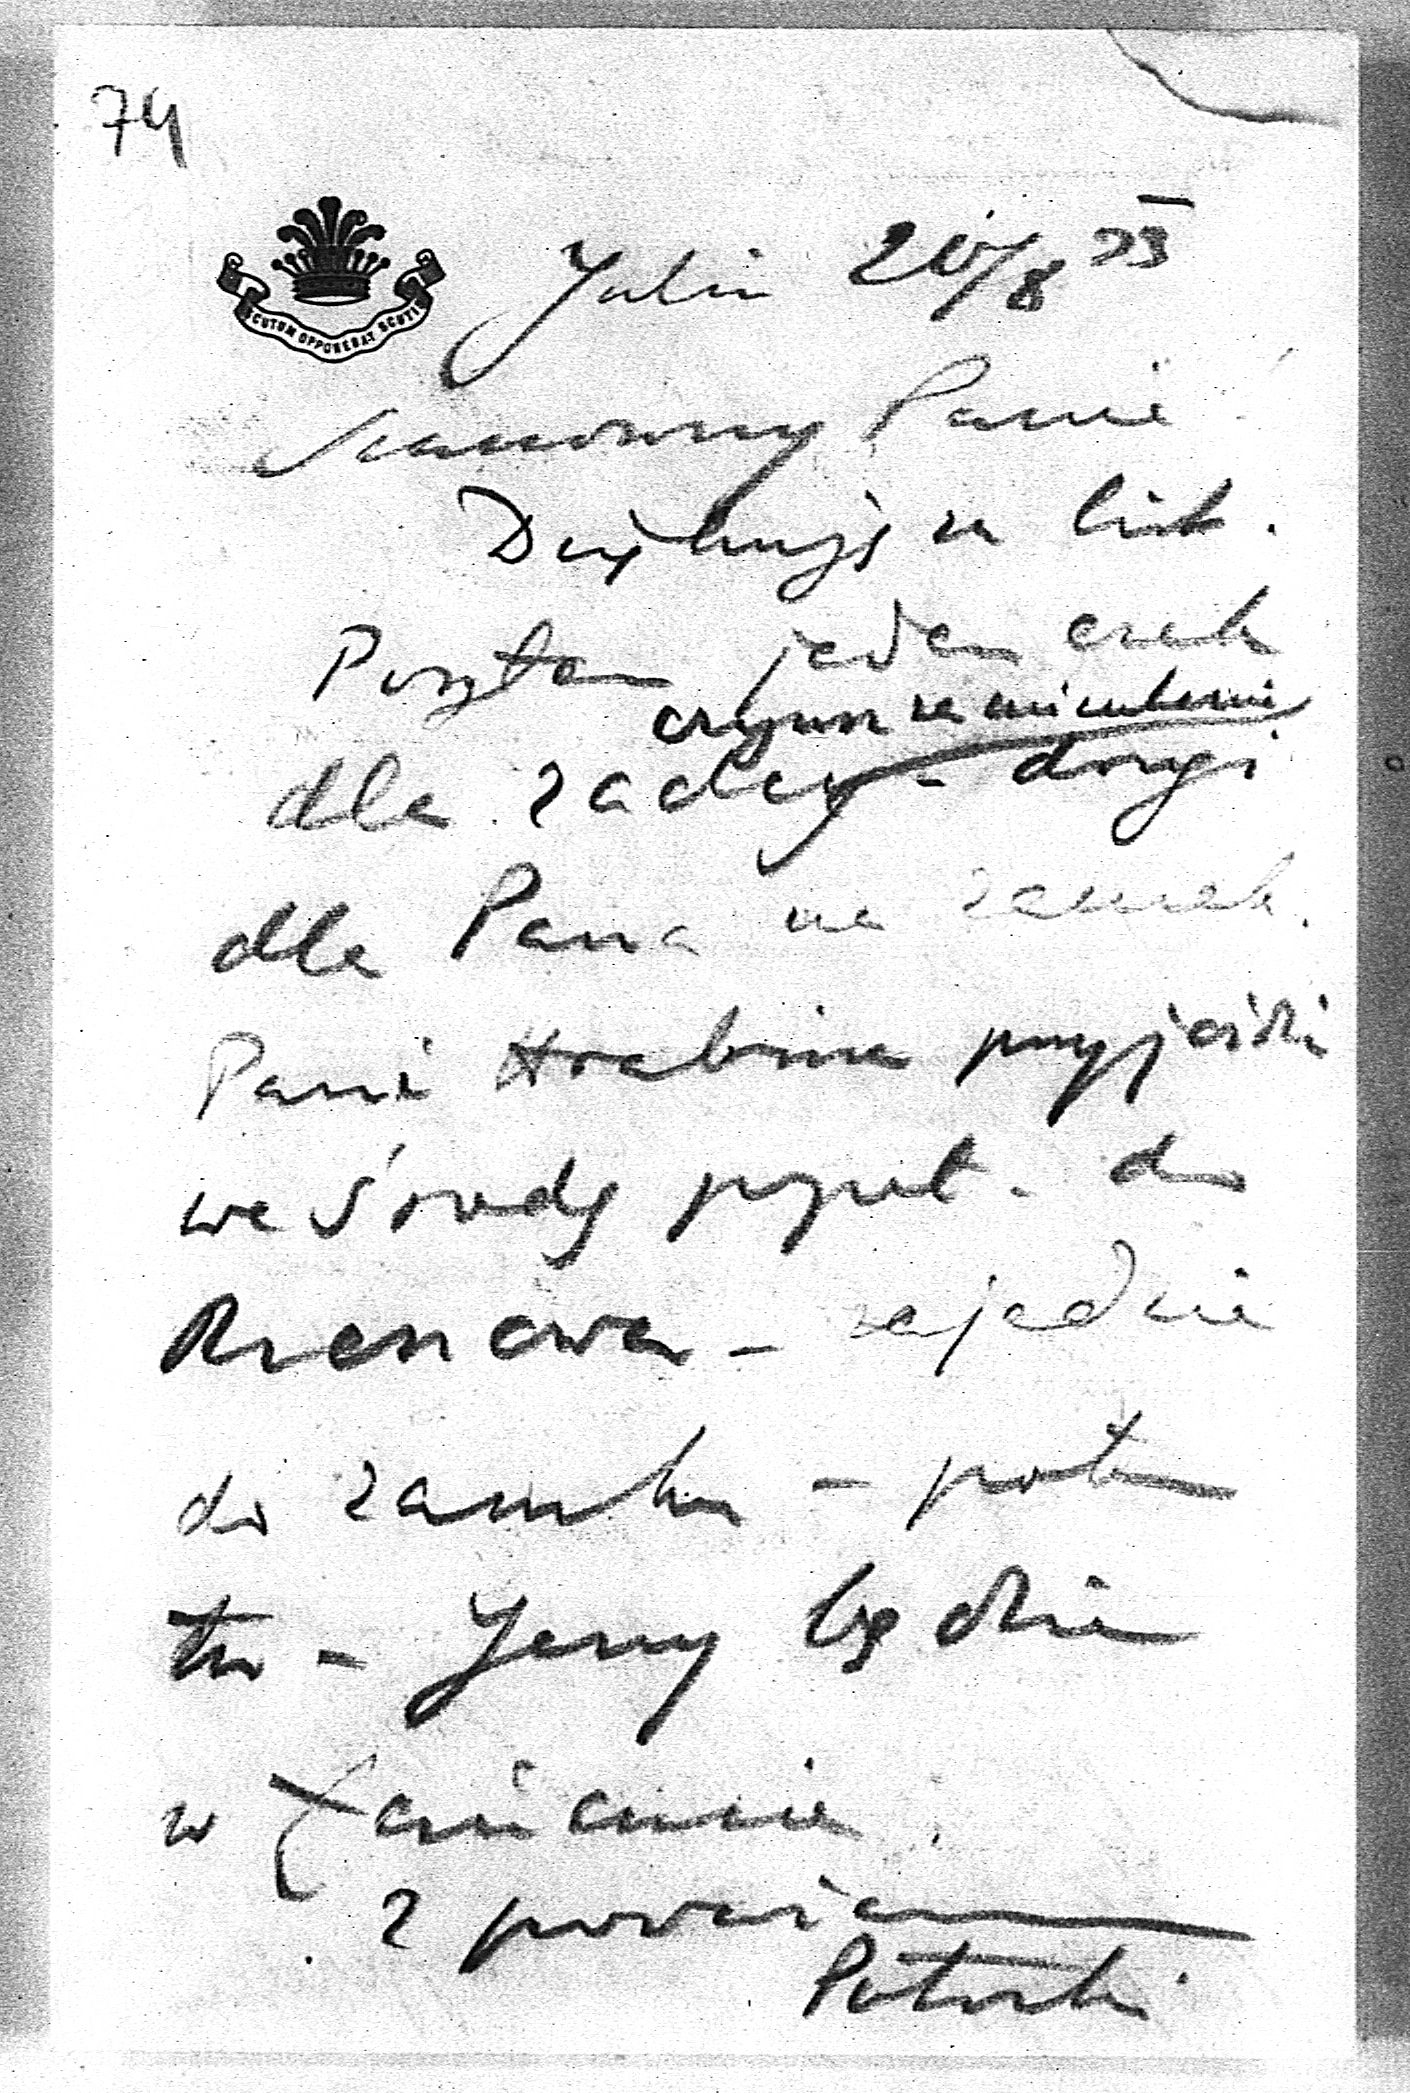 74
SCUTUM OPPONEBAT SCUTIS
Julin 20/8 33
Szanowny Panie!
Dziękuję za list.
Posyłam jeden czek
czynsz za
dla – drugi
dla Pana na zamek.
Pani Hrabina przyjeżdża
we środę popoł. do
Rzeszowa – zajedzie
do zamku – potem
tu – Jerzy będzie
w Łańcucie.
z poważaniem
Potocki